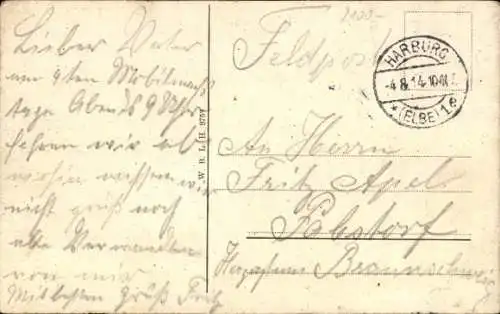 Lieber Vater
am 4ten Mobilmachs
tage Abends 9 Uhr
fahren wir ab
wohin wissen wir
nicht grüß noch
alle Verwandten
von mir
Mit besten Gruß Fritz
W. B. L. H. 8757
Feldpost
HARBURG
4.8.14.10-11
* (ELBE) 1e
An Herrn
Fritz Apel
Pabstorf
Herzogthum Braunschweig